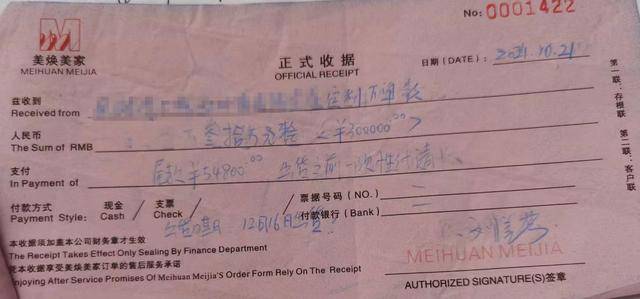 No: 0001422
美焕美家
MEIHUAN MEIJIA
正式收据
OFFICIAL RECEIPT
日期（DATE）: 2021.10.21
兹收到
Received from 定制下单款
人民币
The Sum of RMB 叁拾万元整 <¥300000.00>
支付
In Payment of 尾款¥54800.00 出货之前一次性付清
付款方式 现金 支票 票据号码（NO.）
Payment Style: Cash / Check / 付款银行（Bank）
出货日期 12月16日出货
本收据须加盖本公司财务章才生效
The Receipt Takes Effect Only Sealing By Finance Department
凭本收据享受美焕美家订单的售后服务承诺
Enjoying After Service Promises Of Meihuan Meijia'S Order Form Rely On The Receipt
MEIHUAN MEIJIA
AUTHORIZED SIGNATURE(S)签章
第一联：存根联
第二联：客户联